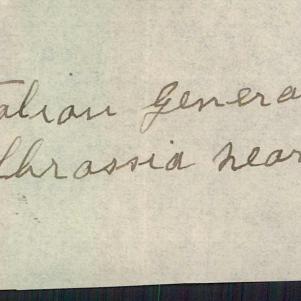 talian Genera
lbrossia near